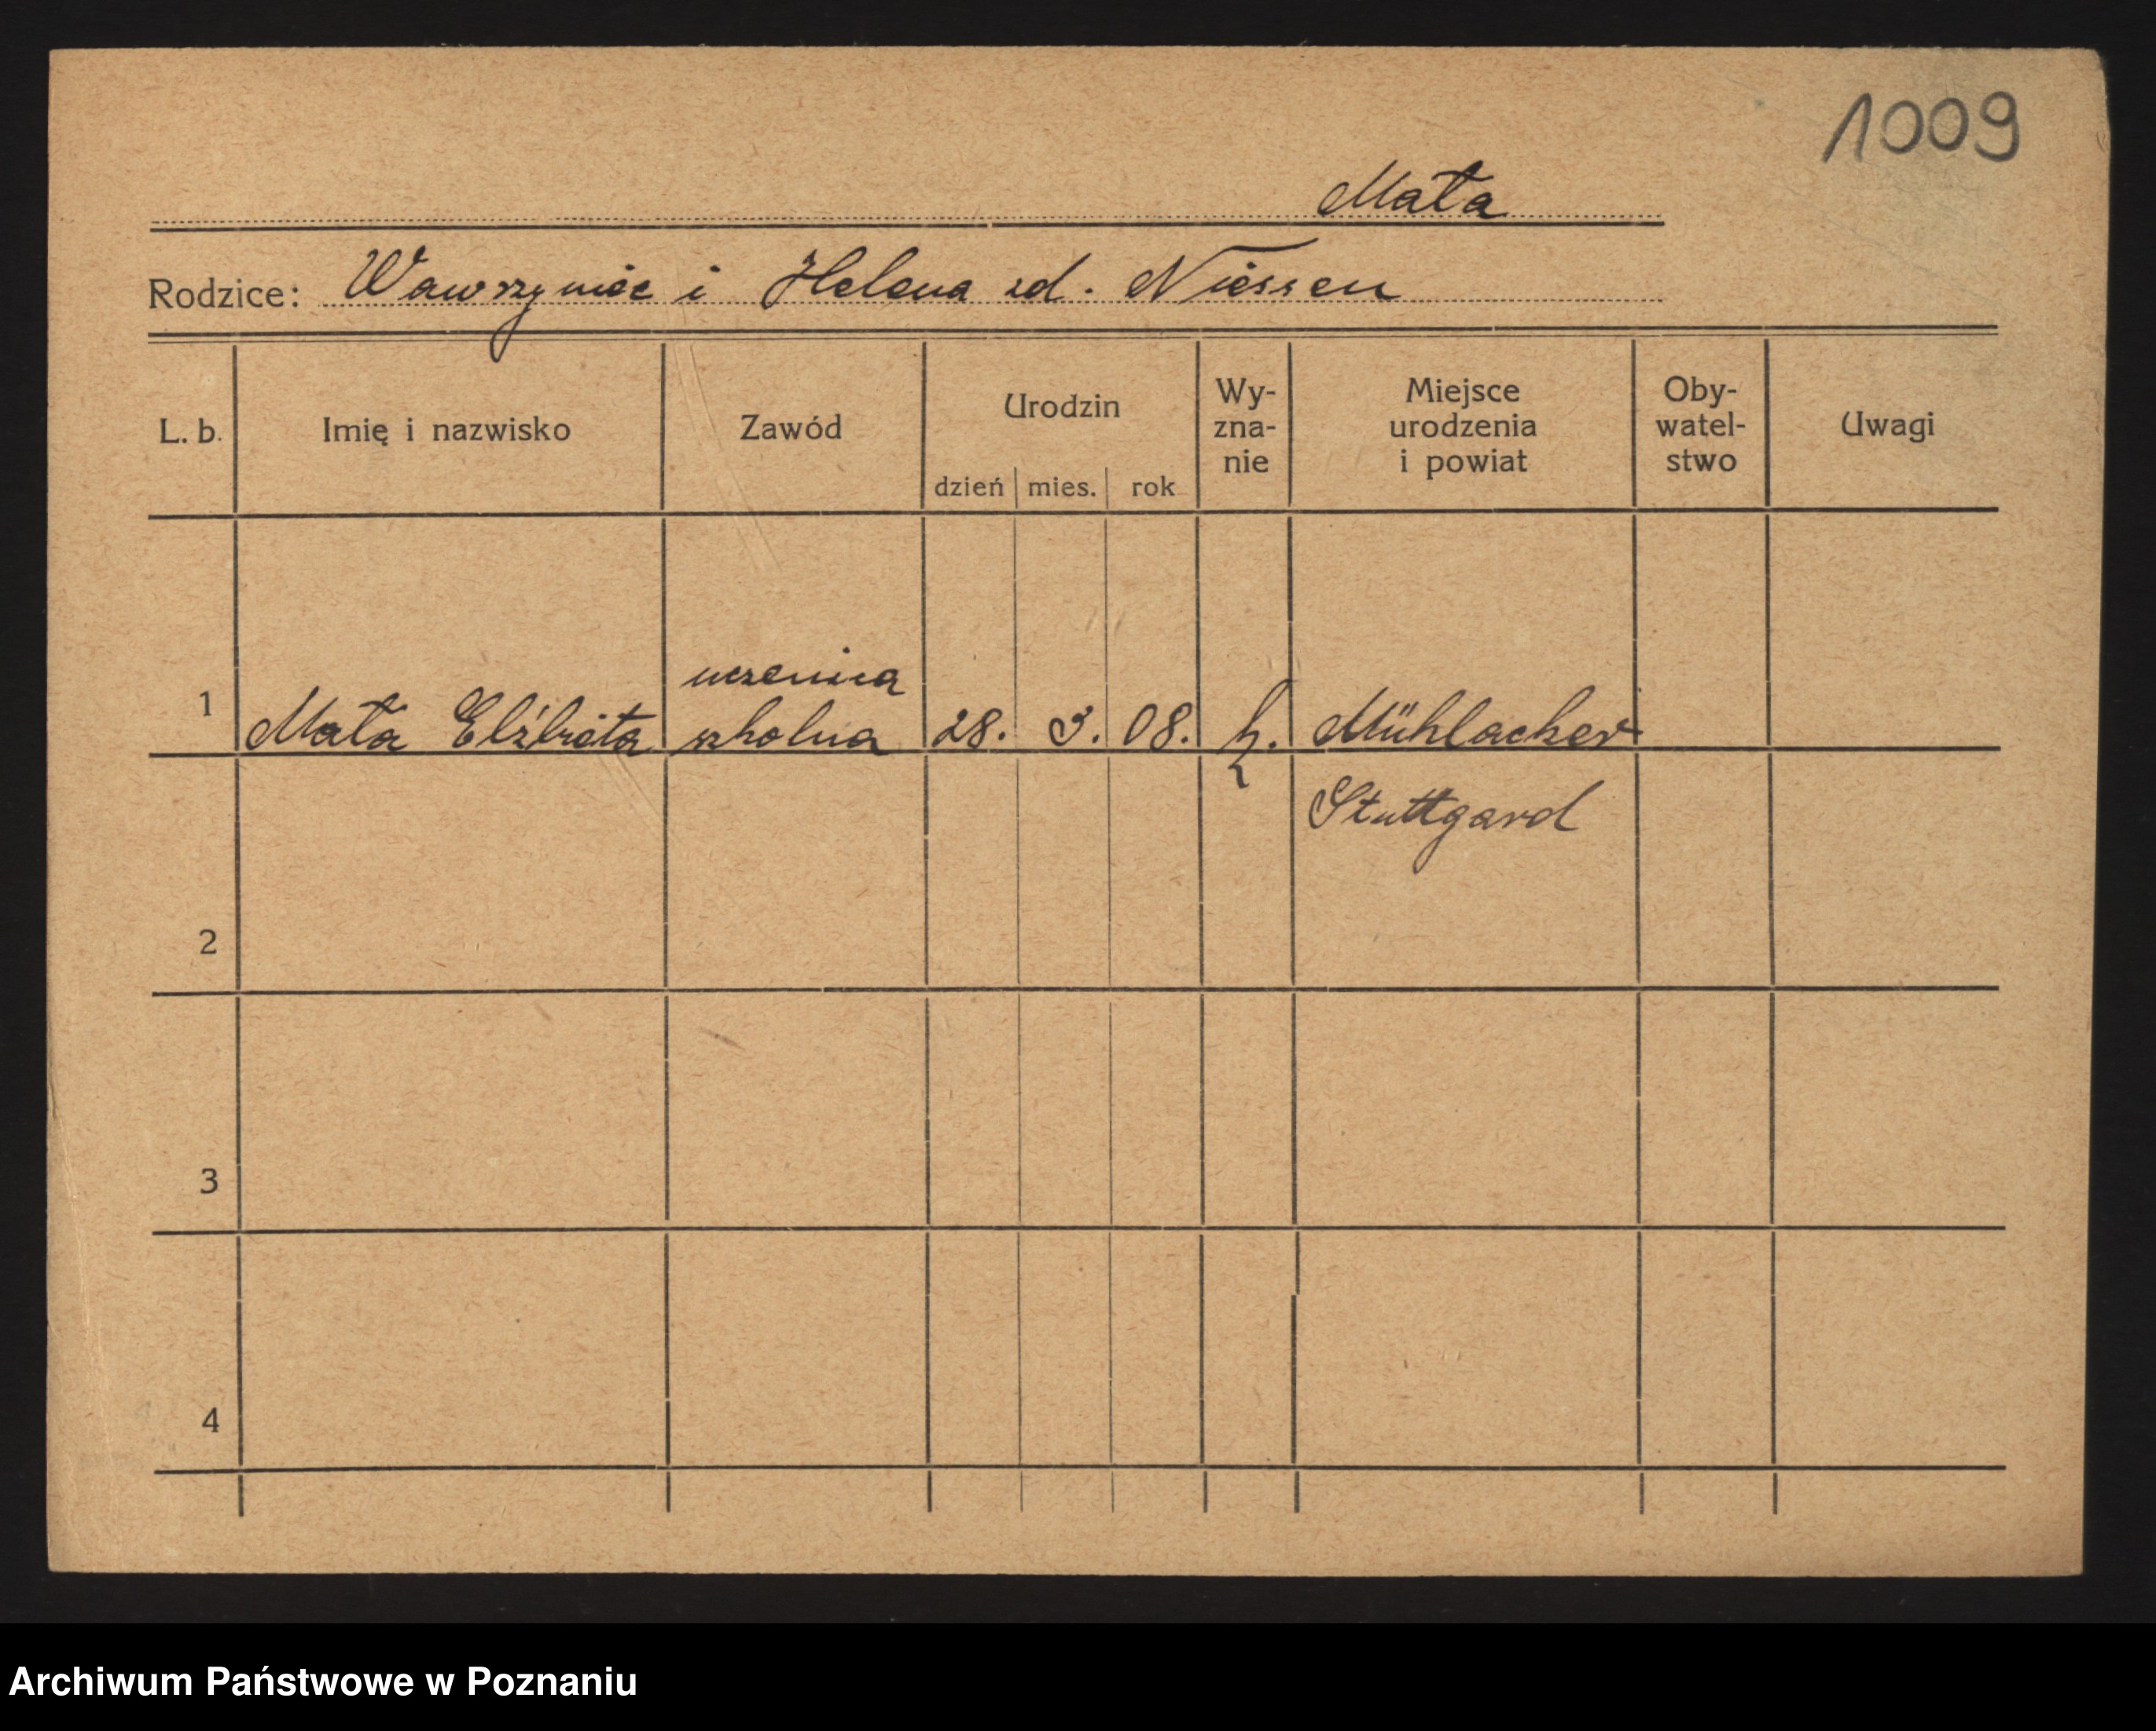 1009
Mała
Rodzice: Wawrzyniec i Helena zd. Niessen
L. b. Imię i nazwisko Zawód Urodzin dzień mies. rok Wy-zna-nie Miejsce urodzenia i powiat Oby-watel-stwo Uwagi
uczenica
1 Mała Elżbieta szkolna 28. 3. 08. k. Mühlacker
Stuttgard
2
3
4
Archiwum Państwowe w Poznaniu